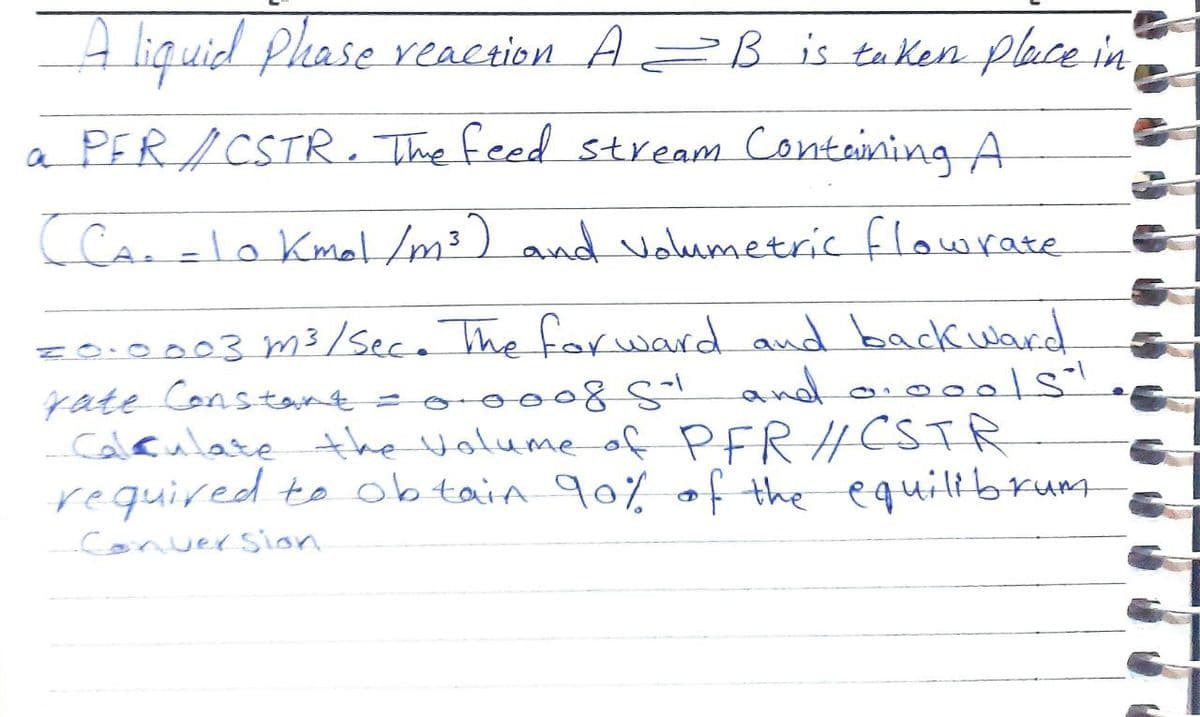 A liquid phase reaction A ⇌ B is taken place in
a PFR // CSTR. The feed stream Containing A
(CA. = 10 Kmol /m³) and volumetric flowrate
= 0.0003 m³/sec. The forward and backward
rate Constant = 0.0008 S⁻¹ and 0.0001 S⁻¹.
Calculate the volume of PFR // CSTR
required to obtain 90% of the equilibrum
Conversion